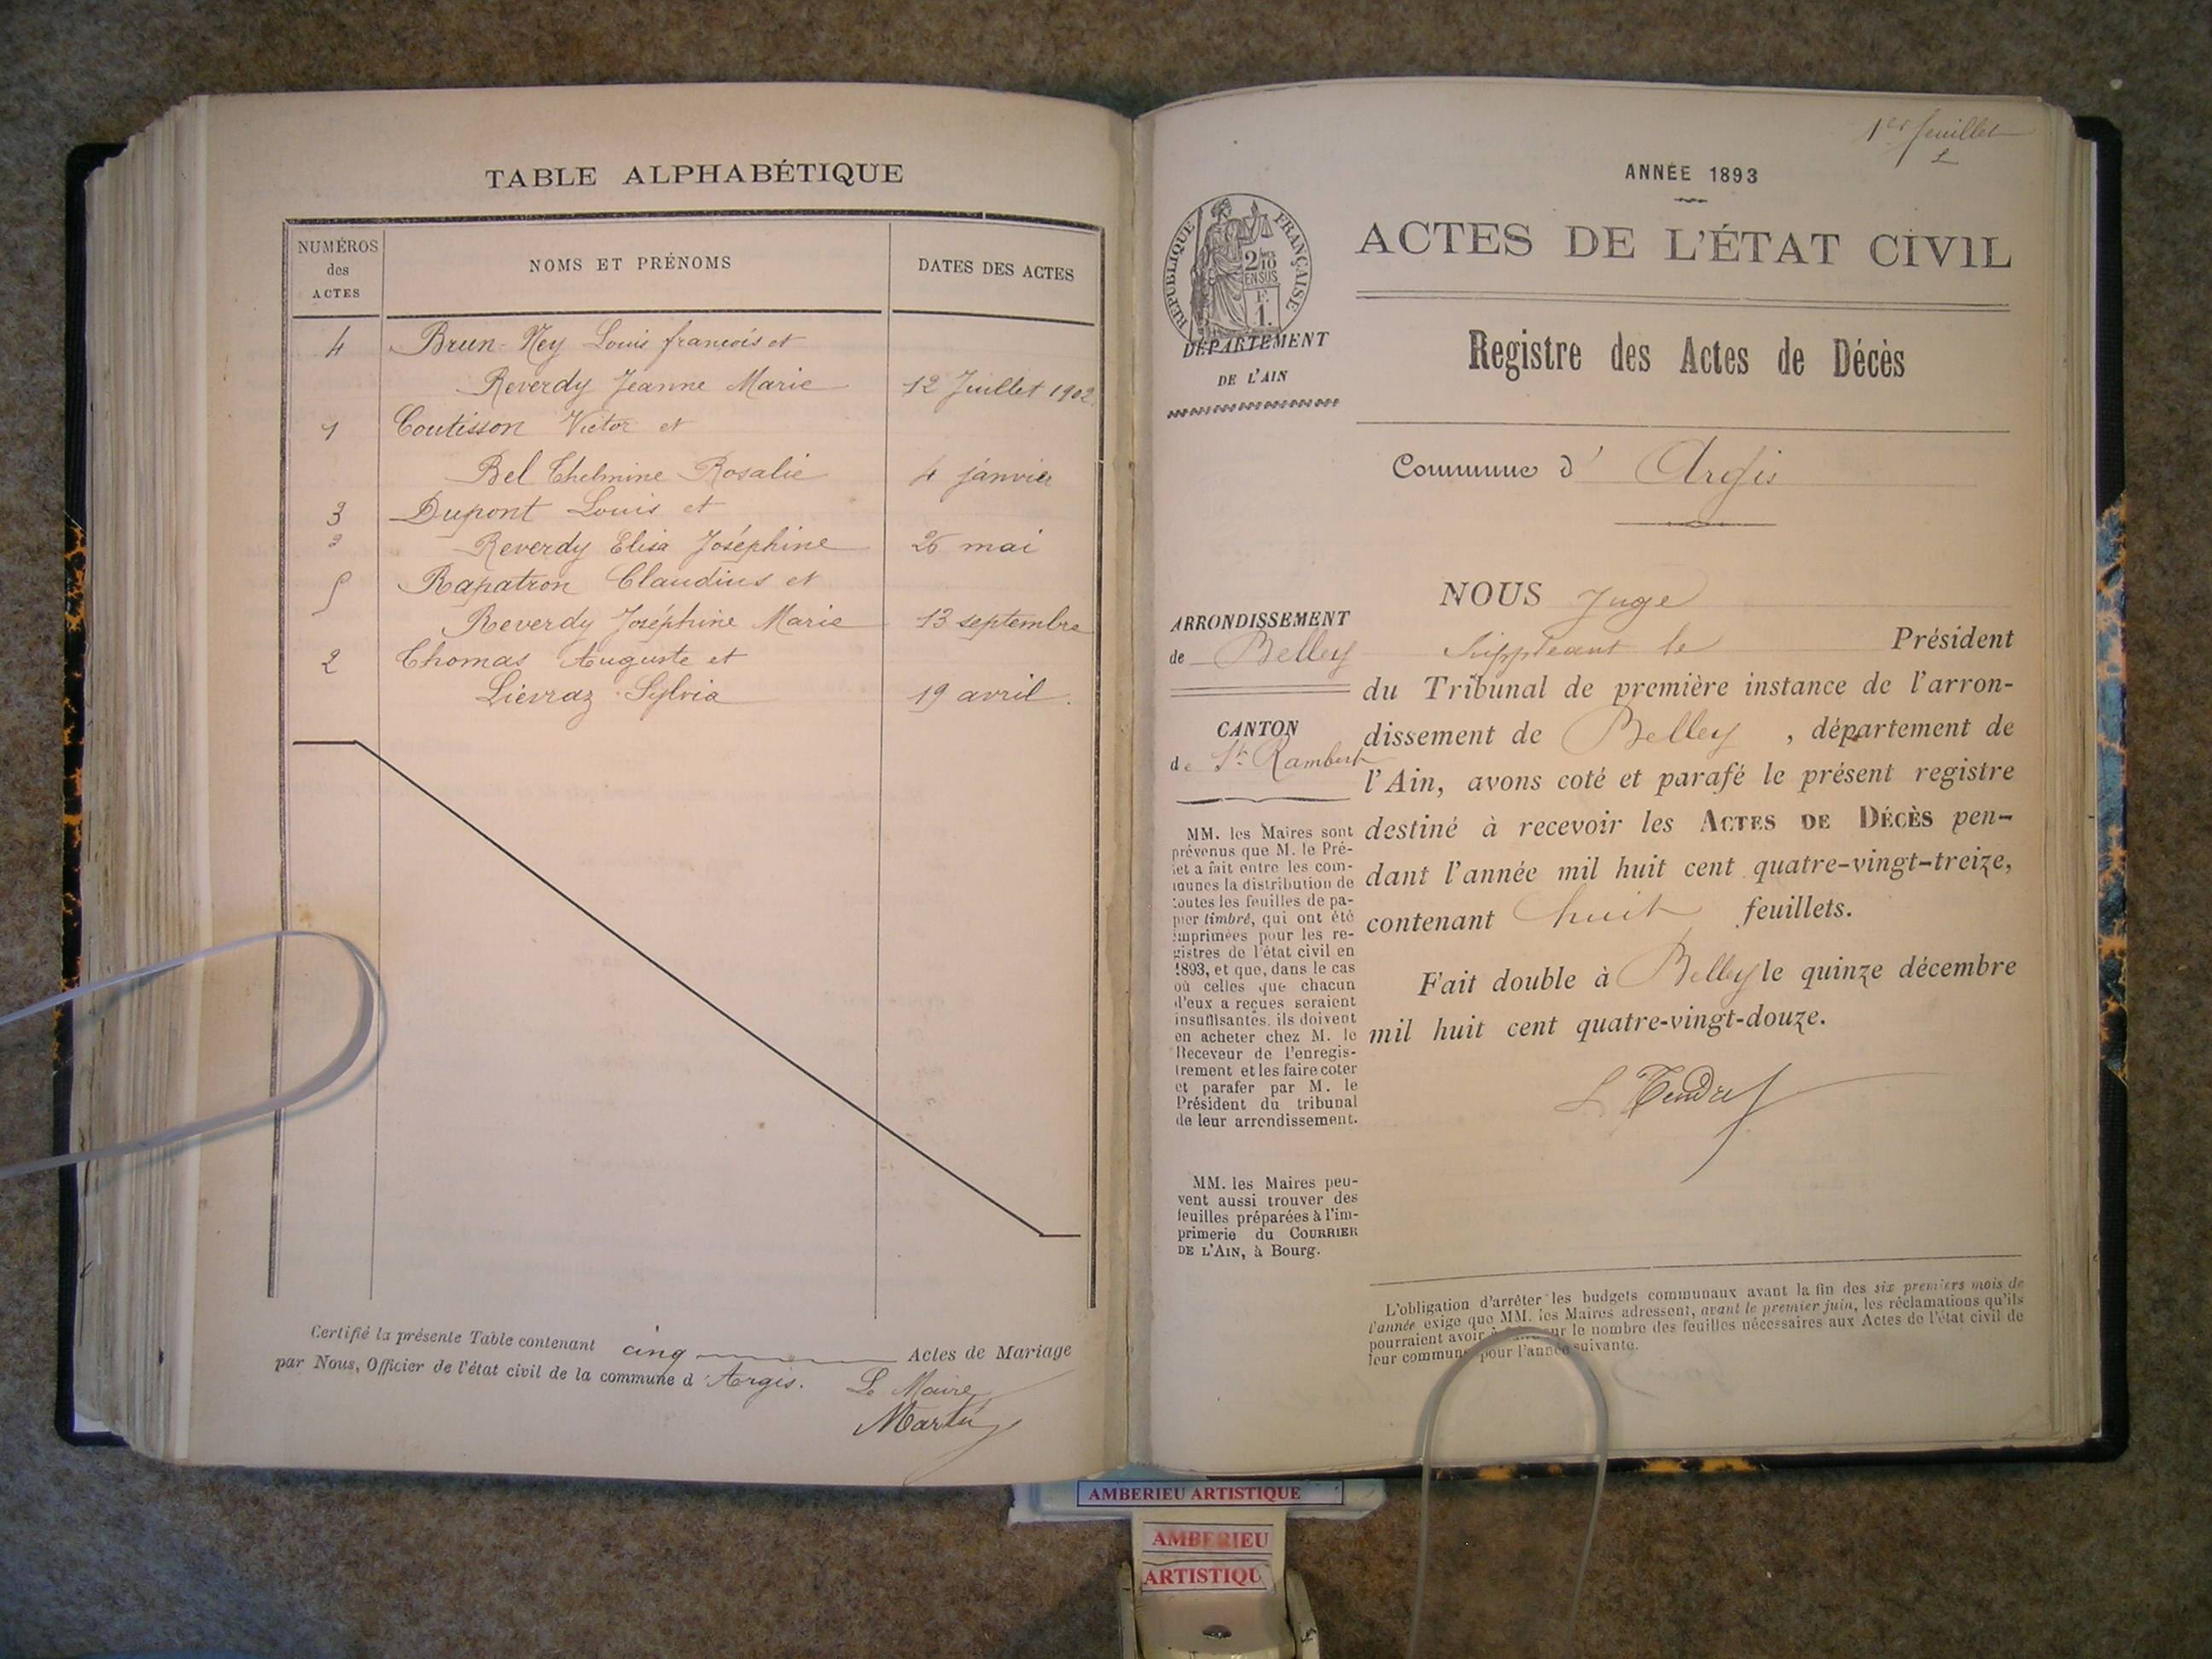 TABLE ALPHABÉTIQUE
NUMÉROS
des
ACTES
NOMS ET PRÉNOMS
DATES DES ACTES
4 Brun-Ney Louis francois et
Reverdy Jeanne Marie 12 Juillet 1902
1 Coutisson Victor et
Bel Thelmine Rosalie 4 janvier
3 Dupont Louis et
Reverdy Elisa Joséphine 26 mai
5 Rapatron Claudius et
Reverdy Joséphine Marie 13 septembre
2 Thomas Auguste et
Lievraz Sylvia 19 avril.
Certifié la présente Table contenant cinq Actes de Mariage
par Nous, Officier de l'état civil de la commune d'Arges.
Le Maire
1er feuillet
ANNÉE 1893
RÉPUBLIQUE FRANÇAISE
2/10
EN SUS
F.
1.
ACTES DE L'ÉTAT CIVIL
DÉPARTEMENT
DE L'AIN
Registre des Actes de Décès
Commune d' Argis
ARRONDISSEMENT
de Belley
CANTON
de St Rambert
MM. les Maires sont
prévenus que M. le Pré-
fet a fait entre les com-
munes la distribution de
toutes les feuilles de pa-
pier timbré, qui ont été
imprimées pour les re-
gistres de l'état civil en
1893, et que, dans le cas
où celles que chacun
d'eux a reçues seraient
insuffisantes, ils doivent
en acheter chez M. le
Receveur de l'enregis-
trement et les faire coter
et parafer par M. le
Président du tribunal
de leur arrondissement.
MM. les Maires peu-
vent aussi trouver des
feuilles préparées à l'im-
primerie du COURRIER
DE L'AIN, à Bourg.
NOUS Juge
Suppleant le Président
du Tribunal de première instance de l'arron-
dissement de Belley, département de
l'Ain, avons coté et parafé le présent registre
destiné à recevoir les ACTES DE DÉCÈS pen-
dant l'année mil huit cent quatre-vingt-treize,
contenant huit feuillets.
Fait double à Belley le quinze décembre
mil huit cent quatre-vingt-douze.
L'obligation d'arrêter les budgets communaux avant la fin des six premiers mois de
l'année exige que MM. les Maires adressent, avant le premier juin, les réclamations qu'ils
pourraient avoir à sur le nombre des feuilles nécessaires aux Actes de l'état civil de
leur commune pour l'année suivante.
AMBERIEU ARTISTIQUE
AMBERIEU
ARTISTIQU